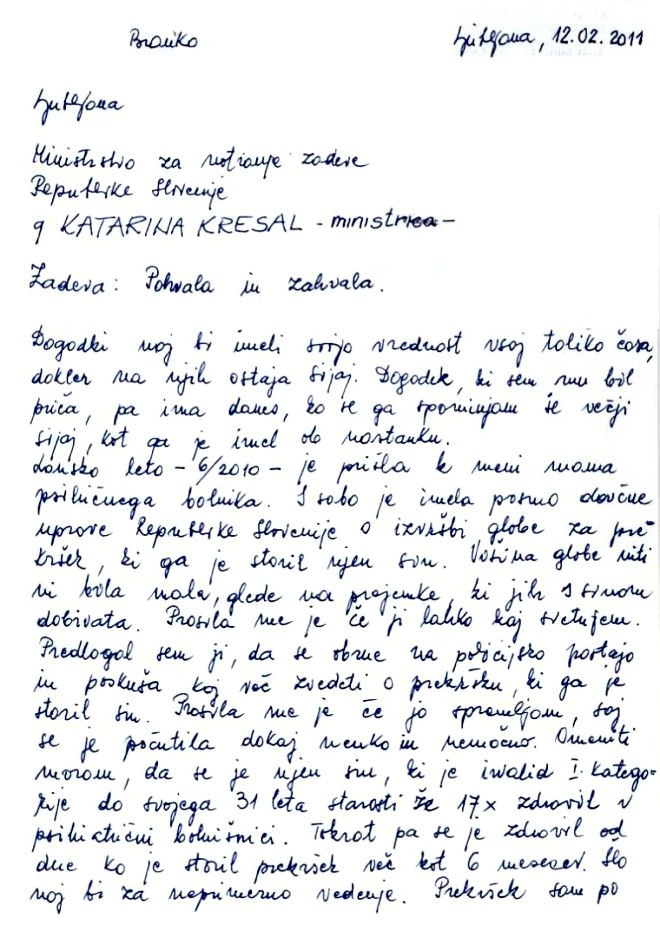 Branko
Ljubljana, 12.02.2011
Ljubljana
Ministrstvo za notranje zadeve
Republike Slovenije
g KATARINA KRESAL - ministrica -
Zadeva: Pohvala in zahvala.
Dogodki naj bi imeli svojo vrednost vsaj toliko časa,
dokler na njih ostaja sijaj. Dogodek, ki sem mu bil
priča, pa ima danes, ko se ga spominjam še večji
sijaj, kot ga je imel ob nastanku.
Lansko leto - 6/2010 - je prišla k meni mama
psihičnega bolnika. S sabo je imela pismo davčne
uprave Republike Slovenije o izvršbi globe za pre-
kršek, ki ga je storil njen sin. Višina globe niti
ni bila mala, glede na prejemke, ki jih s sinom
dobivata. Prosila me je če ji lahko kaj svetujem.
Predlagal sem ji, da se obrne na policijsko postajo
in poskuša kaj več zvedeti o prekršku, ki ga je
storil sin. Prosila me je če jo spremljam, saj
se je počutila dokaj in nemočno. Omeniti
moram, da se je njen sin, ki je invalid I. katego-
rije do svojega 31 leta starosti že 17x zdravil v
psihiatrični bolnišnici. Tokrat pa se je zdravil od
dne ko je storil prekršek več kot 6 mesecev. Šlo
naj bi za neprimerno vedenje. Prekršek sam po